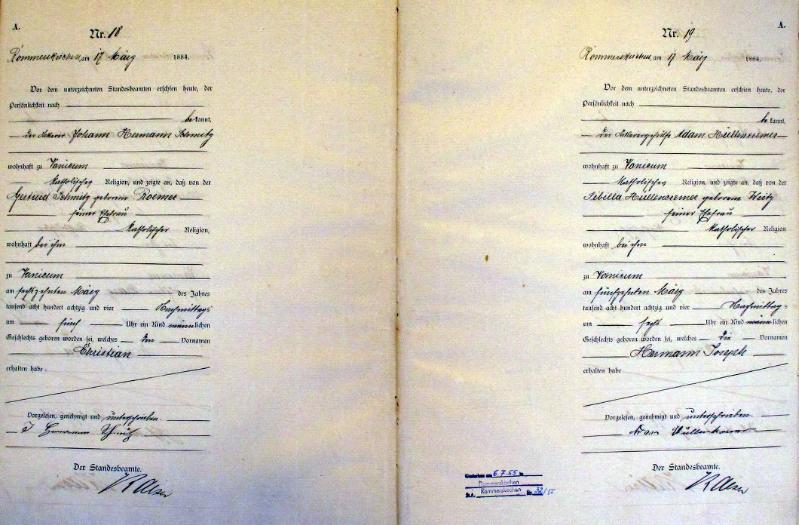 A.
Nr. 18
Rommerskirchen am 17 März 1884.
Vor dem unterzeichneten Standesbeamten erschien heute, der
Persönlichkeit nach
bekannt,
der Ackerer Johann Hermann Schmitz
wohnhaft zu Vanicum
katholischer Religion, und zeigte an, daß von der
Gertrud Schmitz geborene Roemer
seiner Ehefrau
katholischer Religion,
wohnhaft bei ihm
zu Vanicum
am sechszehnten März des Jahres
tausend acht hundert achtzig und vier Nachmittags
um fünf Uhr ein Kind männlichen
Geschlechts geboren worden sei, welches den Vornamen
Christian
erhalten habe.
Vorgelesen, genehmigt und unterschrieben
J Hermann Schmitz
Der Standesbeamte.
A.
Nr. 19
Rommerskirchen am 17 März 1884.
Vor dem unterzeichneten Standesbeamten erschien heute, der
Persönlichkeit nach
bekannt,
der Adam
wohnhaft zu Vanicum
katholischer Religion, und zeigte an, daß von der
Sibilla geborene
seiner Ehefrau
katholischer Religion,
wohnhaft bei ihm
zu Vanicum
am fünfzehnten März des Jahres
tausend acht hundert achtzig und vier Nachmittags
um sechs Uhr ein Kind männlichen
Geschlechts geboren worden sei, welches die Vornamen
Hermann Joseph
erhalten habe
Vorgelesen, genehmigt und unterschrieben
Adam
Der Standesbeamte.
6.7.55
Rommerskirchen